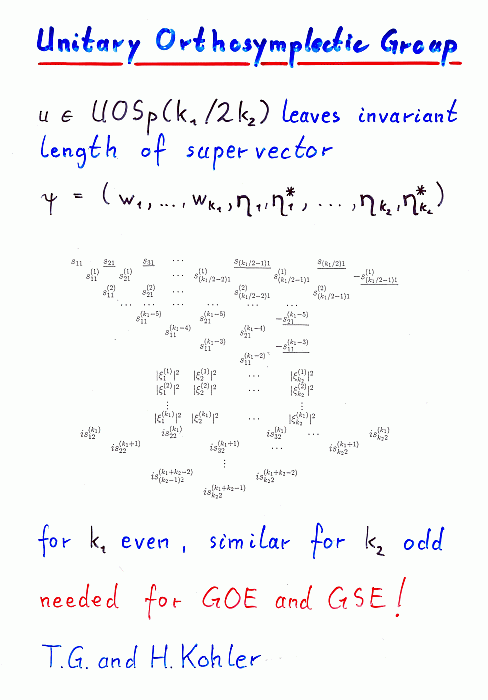 Unitary Orthosymplectic Group
u ∈ UOSp(k₁/2k₂) leaves invariant
length of supervector
ψ = (w₁, ..., w_k₁, η₁, η₁*, ..., η_k₂, η_k₂*)
s₁₁ s₂₁ s₃₁ ⋯ s_(k₁/2−1)1 s_(k₁/2)1
s₁₁^(1) s₂₁^(1) ⋯ s_(k₁/2−2)1^(1) s_(k₁/2−1)1^(1) −s_(k₁/2−1)1^(1)
s₁₁^(2) s₂₁^(2) ⋯ s_(k₁/2−2)1^(2) s_(k₁/2−1)1^(2)
⋯ ⋯ ⋯ ⋯ ⋯ ⋯ ⋯
s₁₁^(k₁−5) s₂₁^(k₁−5) −s₂₁^(k₁−5)
s₁₁^(k₁−4) s₂₁^(k₁−4)
s₁₁^(k₁−3) −s₁₁^(k₁−3)
s₁₁^(k₁−2)
|ξ₁^(1)|² |ξ₂^(1)|² ⋯ |ξ_k₂^(1)|²
|ξ₁^(2)|² |ξ₂^(2)|² ⋯ |ξ_k₂^(2)|²
⋮ ⋮
|ξ₁^(k₁)|² |ξ₂^(k₁)|² ⋯ |ξ_k₂^(k₁)|²
is₁₂^(k₁) is₂₂^(k₁) is₃₂^(k₁) ⋯ is_k₂2^(k₁)
is₂₂^(k₁+1) is₃₂^(k₁+1) ⋯ is_k₂2^(k₁+1)
⋮
is_(k₂−1)2^(k₁+k₂−2) is_k₂2^(k₁+k₂−2)
is_k₂2^(k₁+k₂−1)
for k₁ even, similar for k₂ odd
needed for GOE and GSE!
T.G. and H. Kohler